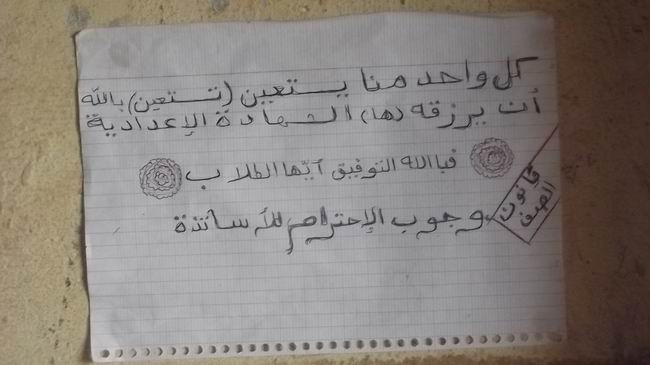 كل واحد منا يستعين (تستعين) بالله
أن يرزقه (ها) الشهادة الإعدادية
فباالله التوفيق أيّها الطلاب
قانون الصف
وجوب الإحترام للأساتذة